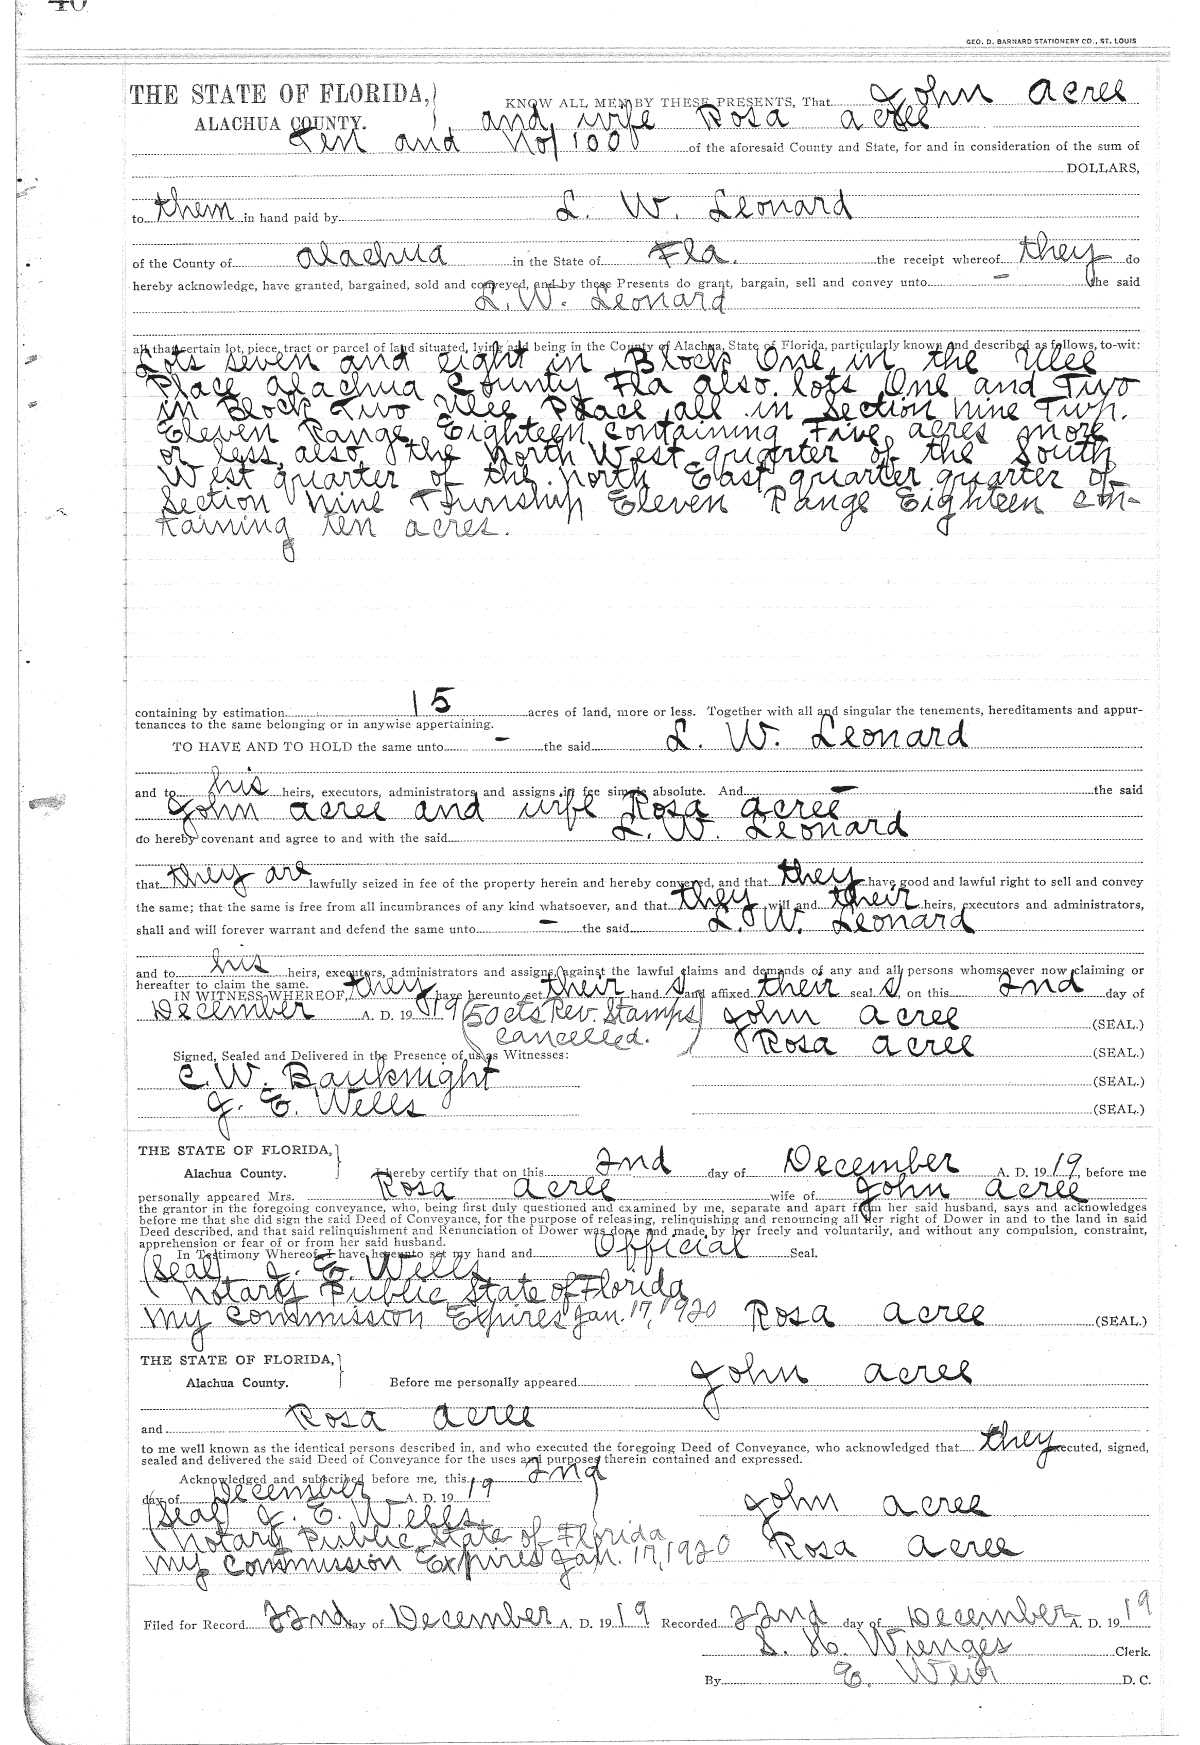 GEO. D. BARNARD STATIONERY CO., ST. LOUIS
THE STATE OF FLORIDA,
ALACHUA COUNTY.
KNOW ALL MEN BY THESE PRESENTS, That John Acree
and wife Rosa Acree
Ten and No/100 of the aforesaid County and State, for and in consideration of the sum of
DOLLARS,
to them in hand paid by L. W. Leonard
of the County of Alachua in the State of Fla. the receipt whereof they do
hereby acknowledge, have granted, bargained, sold and conveyed, and by these Presents do grant, bargain, sell and convey unto - the said
L. W. Leonard
all that certain lot, piece, tract or parcel of land situated, lying and being in the County of Alachua, State of Florida, particularly known and described as follows, to-wit:
Lots seven and eight in Block One in the Ulee
Place Alachua County Fla also lots One and Two
in Block Two Ulee Place all in Section nine Twp.
Eleven Range Eighteen containing Five acres more
or less, also the North West quarter of the South
West quarter of the North East quarter quarter of
Section nine Township Eleven Range Eighteen con-
taining ten acres.
containing by estimation 15 acres of land, more or less. Together with all and singular the tenements, hereditaments and appur-
tenances to the same belonging or in anywise appertaining.
TO HAVE AND TO HOLD the same unto - the said L. W. Leonard
and to his heirs, executors, administrators and assigns in fee simple absolute. And - the said
John Acree and wife Rosa Acree
do hereby covenant and agree to and with the said L. W. Leonard
that they are lawfully seized in fee of the property herein and hereby conveyed, and that they have good and lawful right to sell and convey
the same; that the same is free from all incumbrances of any kind whatsoever, and that they will and their heirs, executors and administrators,
shall and will forever warrant and defend the same unto - the said L. W. Leonard
and to his heirs, executors, administrators and assigns against the lawful claims and demands of any and all persons whomsoever now claiming or
hereafter to claim the same.
IN WITNESS WHEREOF, they have hereunto set their hand s and affixed their seal s, on this 2nd day of
December A. D. 1919 (50 cts Rev. Stamps John Acree (SEAL.)
cancelled.) Rosa Acree (SEAL.)
Signed, Sealed and Delivered in the Presence of us as Witnesses:
C. W. Bauknight (SEAL.)
J. E. Wells (SEAL.)
THE STATE OF FLORIDA,
Alachua County. I hereby certify that on this 2nd day of December A. D. 1919, before me
personally appeared Mrs. Rosa Acree wife of John Acree
the grantor in the foregoing conveyance, who, being first duly questioned and examined by me, separate and apart from her said husband, says and acknowledges
before me that she did sign the said Deed of Conveyance, for the purpose of releasing, relinquishing and renouncing all her right of Dower in and to the land in said
Deed described, and that said relinquishment and Renunciation of Dower was done and made by her freely and voluntarily, and without any compulsion, constraint,
apprehension or fear of or from her said husband.
In Testimony Whereof, I have hereunto set my hand and Official Seal.
(Seal) J. E. Wells
Notary Public State of Florida
My Commission Expires Jan. 17, 1920 Rosa Acree (SEAL.)
THE STATE OF FLORIDA,
Alachua County. Before me personally appeared John Acree
and Rosa Acree
to me well known as the identical persons described in, and who executed the foregoing Deed of Conveyance, who acknowledged that they executed, signed,
sealed and delivered the said Deed of Conveyance for the uses and purposes therein contained and expressed.
Acknowledged and subscribed before me, this 2nd
day of December A. D. 19 19
(Seal) J. E. Wells John Acree
Notary Public State of Florida
My Commission Expires Jan. 17, 1920 Rosa Acree
Filed for Record 22nd day of December A. D. 1919 Recorded 22nd day of December A. D. 1919
S. H. Wienges Clerk.
By E. Weir D. C.